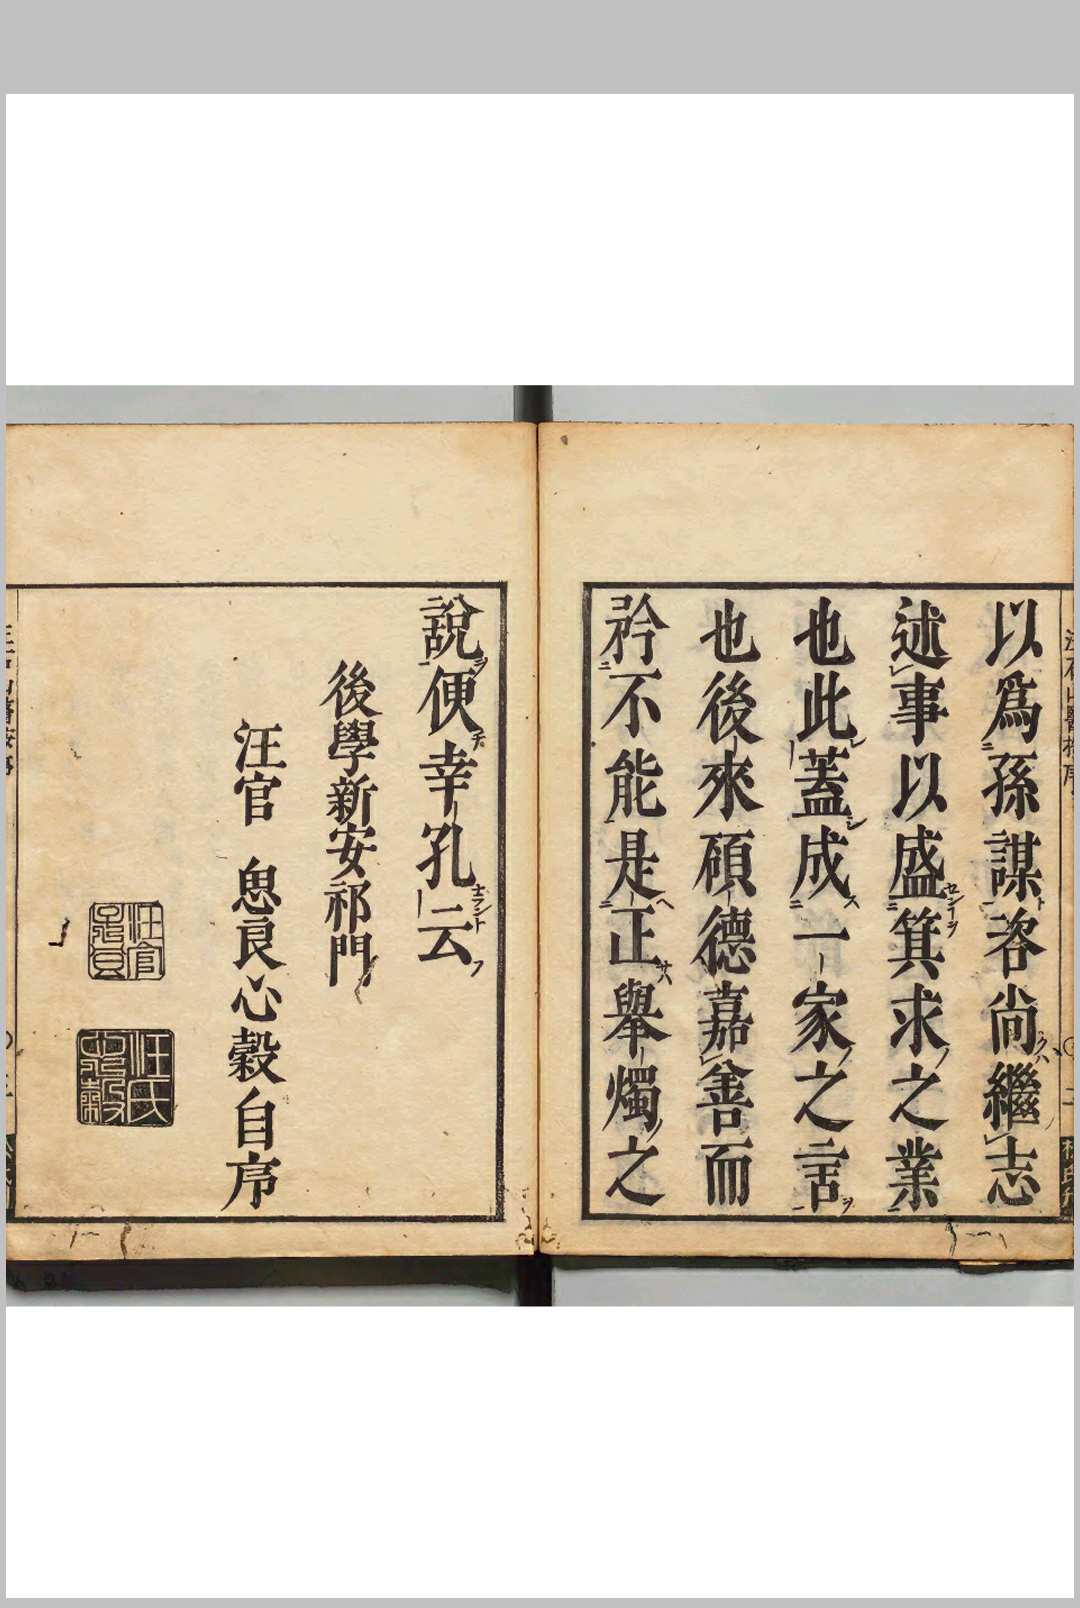 以爲孫謀咨尚繼志
述事以盛箕求之業
也此蓋成一家之言
也後來碩德嘉善而
矜不能是正舉燭之
說便幸孔云
後學新安祁門
汪官 思良心穀自序
汪官
汪氏